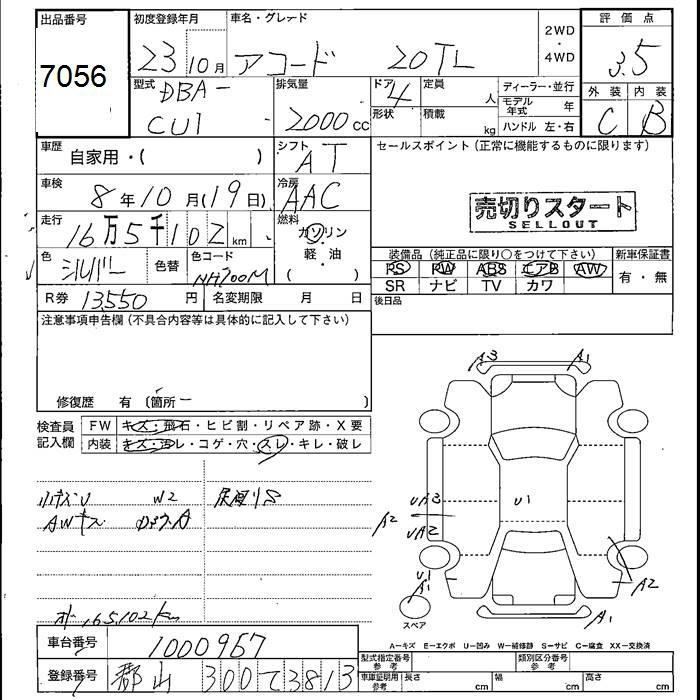 出品番号
7056
初度登録年月
23 10 月
車名・グレード
アコード 20TL
2WD
・
4WD
評価点
3.5
外装 内装
C B
型式
DBA-
CU1
排気量
2000 cc
ドア
4
形状
定員
人
積載
kg
ディーラー・並行
モデル年式 年
ハンドル 左・右
車歴
自家用・( )
シフト
AT
セールスポイント(正常に機能するものに限ります)
車検
8 年 10 月(19 日)
冷房
AAC
売切りスタート
SELLOUT
走行
16 万 5 千 1 0 2 km
燃料
ガソリン
・
軽・油
( )
色
シルバー
色替
色コード
NH700M
装備品(純正品に限り○をつけて下さい)
PS PW ABS エアB AW
SR ナビ TV カワ
新車保証書
有・無
R券 13,550 円
名変期限 月 日
後日品
注意事項申告欄(不具合内容等は具体的に記入して下さい)
修復歴 有 (箇所ー )
検査員
記入欄
FW キズ・飛石・ヒビ割・リペア跡・X要
内装 キズ・汚レ・コゲ・穴・スレ・キレ・破レ
小キズ U W2
AWキズ
165102km
A3 A1
UA3
A2
UA2
U1
U1
A1
A2
A1
スペア
A-キズ E-エクボ U-凹み W-補修跡 S-サビ C-腐食 XX-交換済
車台番号 1000967
登録番号 郡山 300 て 3813
型式指定番号
参考
類別区分番号
参考
車庫証明用
参考
長さ cm 幅 cm 高さ cm